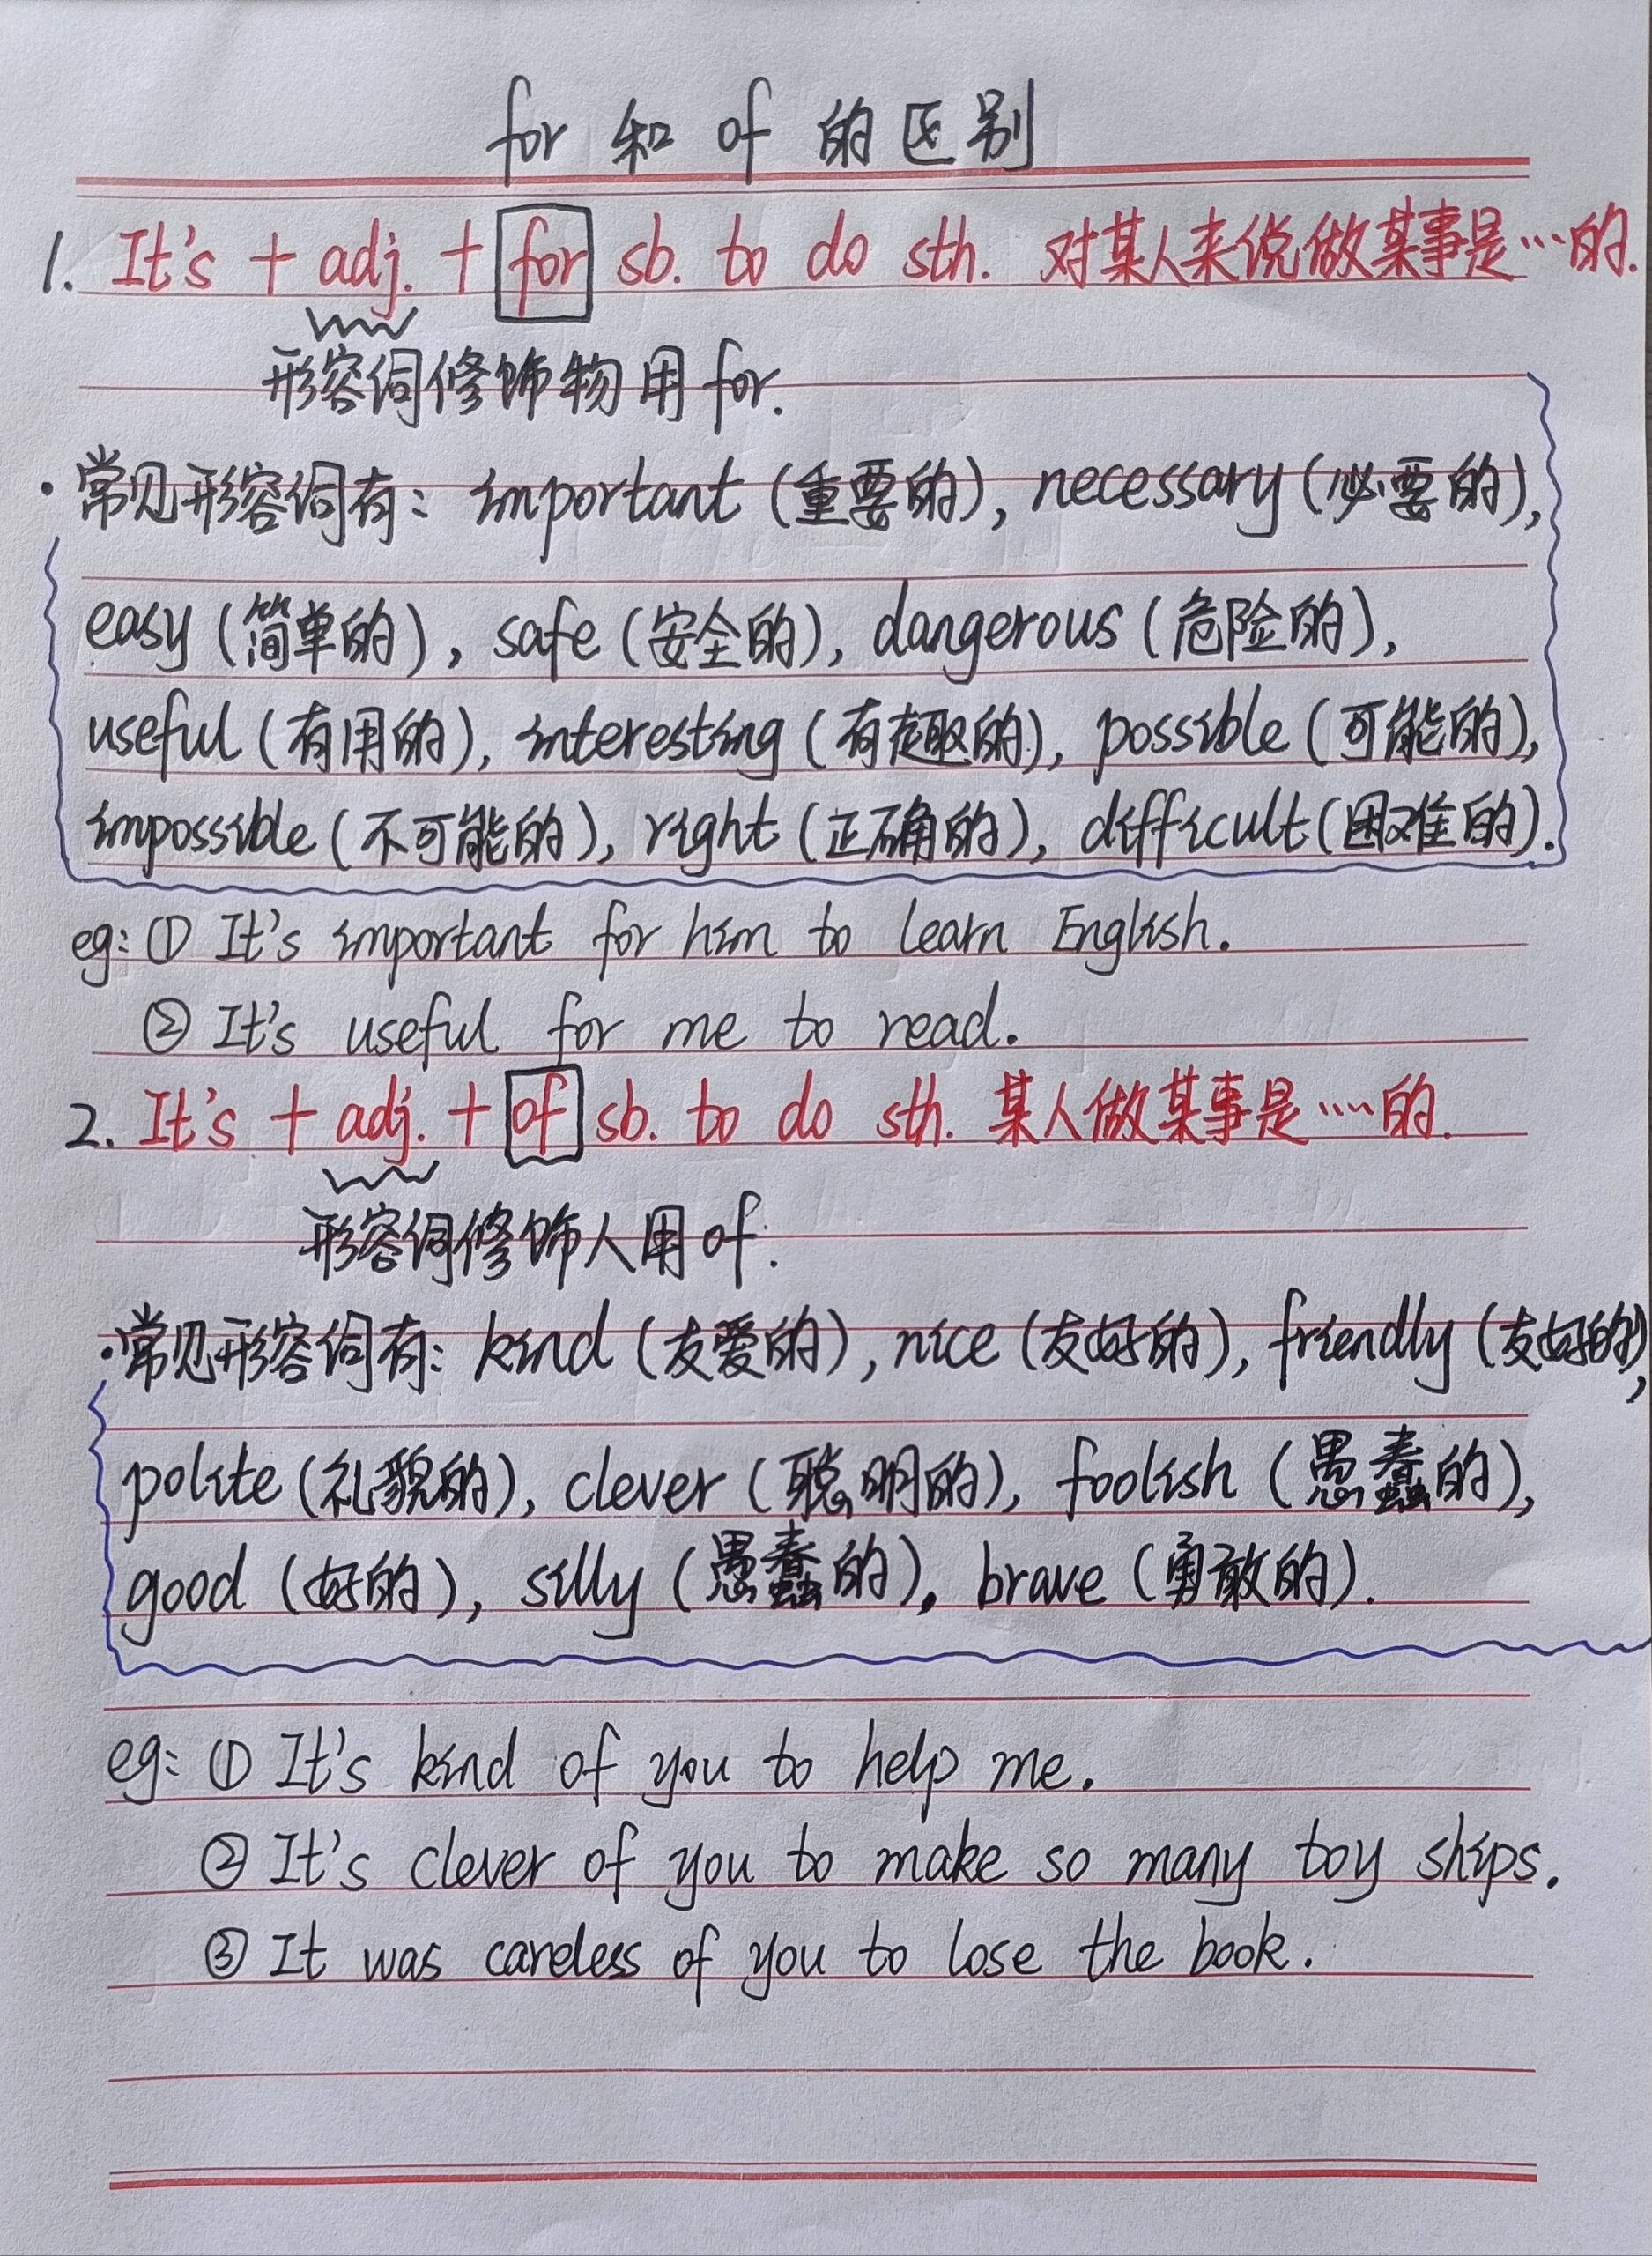 for 和 of 的区别
1. It's + adj. + for sb. to do sth. 对某人来说做某事是…的.
形容词修饰物用 for.
·常见形容词有: important (重要的), necessary (必要的),
easy (简单的), safe (安全的), dangerous (危险的),
useful (有用的), interesting (有趣的), possible (可能的),
impossible (不可能的), right (正确的), difficult (困难的).
eg: ① It's important for him to learn English.
② It's useful for me to read.
2. It's + adj. + of sb. to do sth. 某人做某事是……的.
形容词修饰人用 of.
·常见形容词有: kind (友爱的), nice (友好的), friendly (友好的),
polite (礼貌的), clever (聪明的), foolish (愚蠢的),
good (好的), silly (愚蠢的), brave (勇敢的).
eg: ① It's kind of you to help me.
② It's clever of you to make so many toy ships.
③ It was careless of you to lose the book.